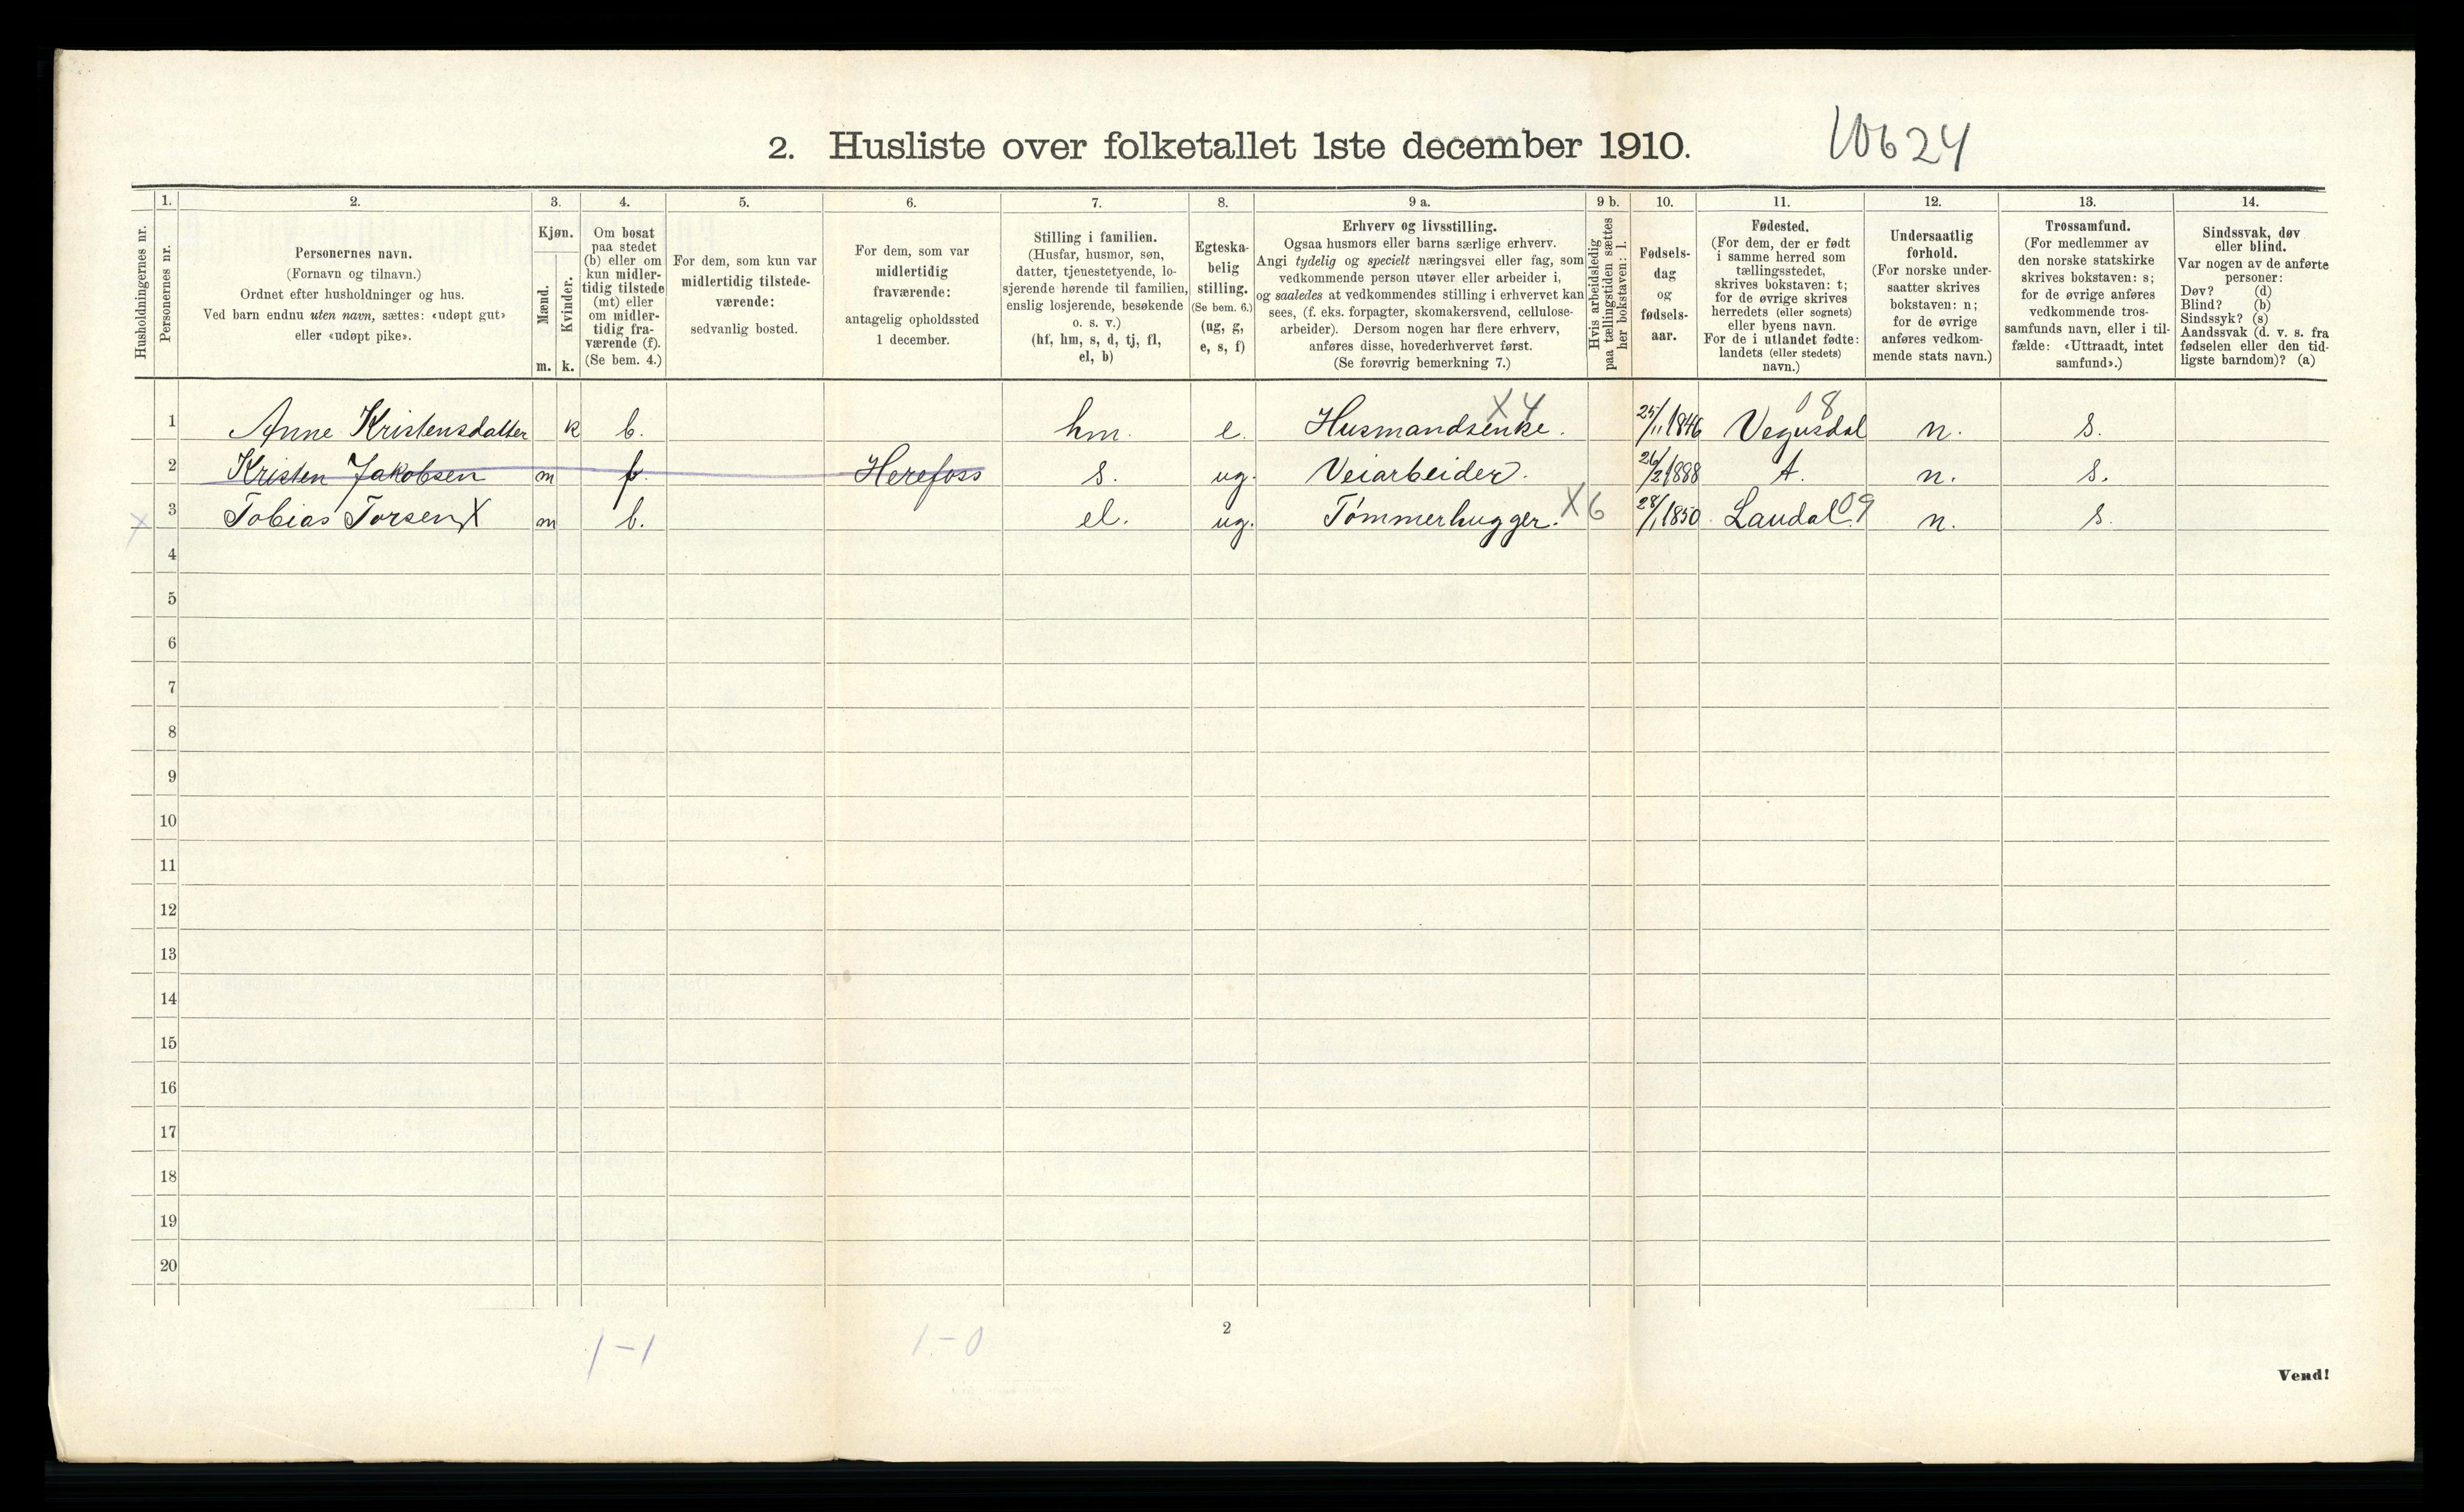 2. Husliste over folketallet 1ste december 1910.
10624
Husholdningernes nr.
1.
Personernes nr.
2.
Personernes navn.
(Fornavn og tilnavn.)
Ordnet efter husholdninger og hus.
Ved barn endnu uten navn, sættes: «udøpt gut»
eller «udøpt pike».
3.
Kjøn.
Mænd.
Kvinder.
m. k.
4.
Om bosat
paa stedet
(b) eller om
kun midler-
tidig tilstede
(mt) eller
om midler-
tidig fra-
værende (f).
(Se bem. 4.)
5.
For dem, som kun var
midlertidig tilstede-
værende:
sedvanlig bosted.
6.
For dem, som var
midlertidig
fraværende:
antagelig opholdssted
1 december.
7.
Stilling i familien.
(Husfar, husmor, søn,
datter, tjenestetyende, lo-
sjerende hørende til familien,
enslig losjerende, besøkende
o. s. v.)
(hf, hm, s, d, tj, fl,
el, b)
8.
Egteska-
belig
stilling.
(Se bem. 6.)
(ug, g,
e, s, f)
9 a.
Erhverv og livsstilling.
Ogsaa husmors eller barns særlige erhverv.
Angi tydelig og specielt næringsvei eller fag, som
vedkommende person utøver eller arbeider i,
og saaledes at vedkommendes stilling i erhvervet kan
sees, (f. eks. forpagter, skomakersvend, cellulose-
arbeider). Dersom nogen har flere erhverv,
anføres disse, hovederhvervet først.
(Se forøvrig bemerkning 7.)
9 b.
Hvis arbeidsledig
paa tællingstiden sættes
her bokstaven: l.
10.
Fødsels-
dag
og
fødsels-
aar.
11.
Fødested.
(For dem, der er født
i samme herred som
tællingsstedet,
skrives bokstaven: t;
for de øvrige skrives
herredets (eller sognets)
eller byens navn.
For de i utlandet fødte:
landets (eller stedets)
navn.)
12.
Undersaatlig
forhold.
(For norske under-
saatter skrives
bokstaven: n;
for de øvrige
anføres vedkom-
mende stats navn.)
13.
Trossamfund.
(For medlemmer av
den norske statskirke
skrives bokstaven: s;
for de øvrige anføres
vedkommende tros-
samfunds navn, eller i til-
fælde: «Uttraadt, intet
samfund».)
14.
Sindssvak, døv
eller blind.
Var nogen av de anførte
personer:
Døv? (d)
Blind? (b)
Sindssyk? (s)
Aandssvak (d. v. s. fra
fødselen eller den tid-
ligste barndom)? (a)
X 4 08
1 Anne Kristensdatter k b. hm. e. Husmandsenke. 25/11 1846 Vegusdal n. s.
2 Kristen Jakobsen m f. Herefoss s. ug. Veiarbeider. 26/2 1888 t. n. s.
X 3 Tobias Torsen X m b. el. ug. Tømmerhugger. X6 28/1 1850 Laudal. 09 n. s.
4
5
6
7
8
9
10
11
12
13
14
15
16
17
18
19
20
1-1
1-0
2
Vend!